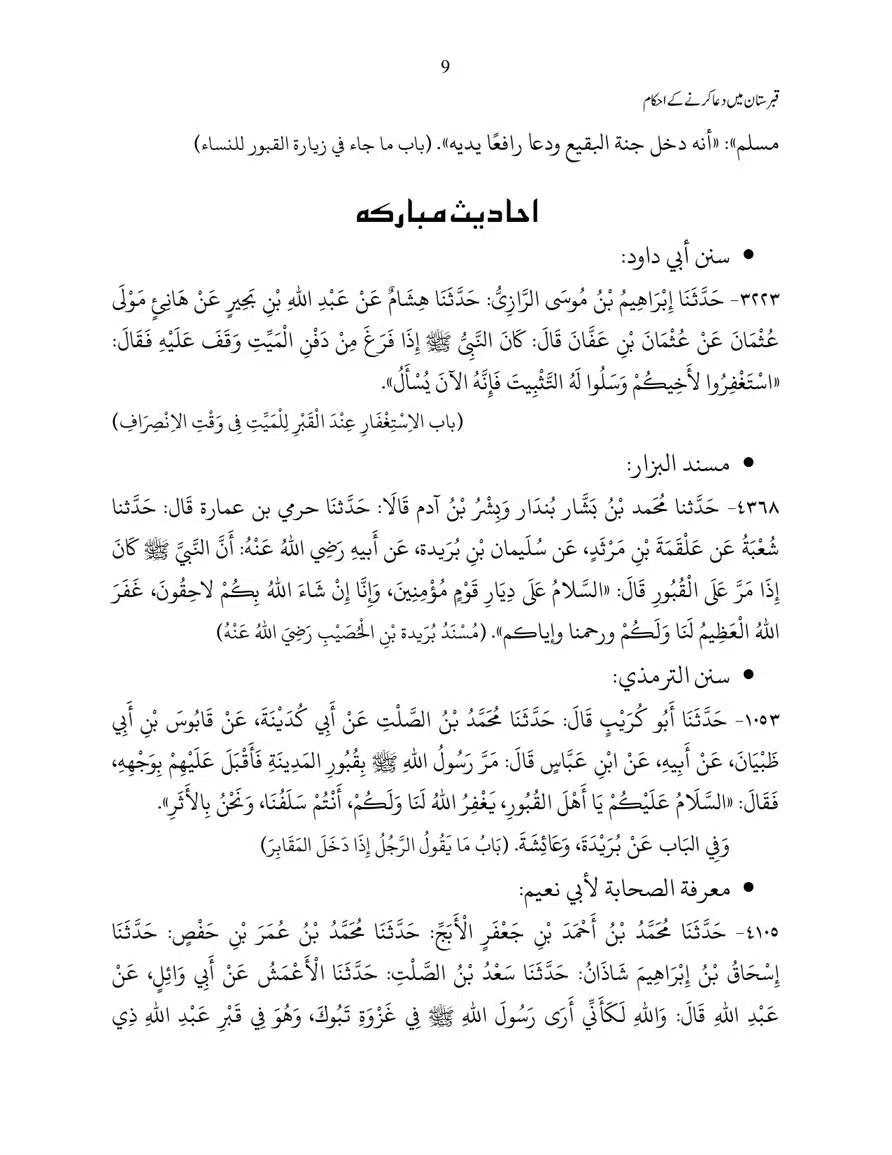 9
قبرستان میں دعا کرنے کے احکام
مسلم»: «أنه دخل جنة البقيع ودعا رافعًا يديه». (باب ما جاء في زيارة القبور للنساء)
احادیث مبارکہ
• سنن أبي داود:
٣٢٢٣- حَدَّثَنَا إِبْرَاهِيمُ بْنُ مُوسَى الرَّازِىُّ: حَدَّثَنَا هِشَامٌ عَنْ عَبْدِ اللهِ بْنِ بَحِيرٍ عَنْ هَانِئٍ مَوْلَى
عُثْمَانَ عَنْ عُثْمَانَ بْنِ عَفَّانَ قَالَ: كَانَ النَّبِىُّ ﷺ إِذَا فَرَغَ مِنْ دَفْنِ الْمَيِّتِ وَقَفَ عَلَيْهِ فَقَالَ:
«اسْتَغْفِرُوا لأَخِيكُمْ وَسَلُوا لَهُ التَّثْبِيتَ فَإِنَّهُ الآنَ يُسْأَلُ».
(باب الاِسْتِغْفَارِ عِنْدَ الْقَبْرِ لِلْمَيِّتِ فِى وَقْتِ الاِنْصِرَافِ)
• مسند البزار:
٤٣٦٨- حَدَّثنا مُحَمد بْنُ بَشَّار بُندَار وَبِشْرُ بْنُ آدم قَالَا: حَدَّثنَا حرمي بن عمارة قَال: حَدَّثنا
شُعْبَةُ عَن عَلْقَمَةَ بْنِ مَرْثَدٍ، عَن سُلَيمان بْنِ بُرَيدة، عَن أَبيهِ رَضِي اللهُ عَنْهُ: أَنَّ النَّبِيَّ ﷺ كَانَ
إِذَا مَرَّ عَلَى الْقُبُورِ قَالَ: «السَّلامُ عَلَى دِيَارِ قَوْمٍ مُؤْمِنِينَ، وَإِنَّا إِنْ شَاءَ اللهُ بِكُمْ لاحِقُونَ، غَفَرَ
اللهُ الْعَظِيمُ لَنَا وَلَكُمْ ورحمنا وإياكم». (مُسْنَدُ بُرَيدة بْنِ الْحُصَيْبِ رَضِيَ اللهُ عَنْهُ)
• سنن الترمذي:
١٠٥٣- حَدَّثَنَا أَبُو كُرَيْبٍ قَالَ: حَدَّثَنَا مُحَمَّدُ بْنُ الصَّلْتِ عَنْ أَبِي كُدَيْنَةَ، عَنْ قَابُوسَ بْنِ أَبِي
ظَبْيَانَ، عَنْ أَبِيهِ، عَنْ ابْنِ عَبَّاسٍ قَالَ: مَرَّ رَسُولُ اللهِ ﷺ بِقُبُورِ المَدِينَةِ فَأَقْبَلَ عَلَيْهِمْ بِوَجْهِهِ،
فَقَالَ: «السَّلَامُ عَلَيْكُمْ يَا أَهْلَ القُبُورِ، يَغْفِرُ اللهُ لَنَا وَلَكُمْ، أَنْتُمْ سَلَفُنَا، وَنَحْنُ بِالأَثَرِ».
وَفِي البَاب عَنْ بُرَيْدَةَ، وَعَائِشَةَ. (بَابُ مَا يَقُولُ الرَّجُلُ إِذَا دَخَلَ المَقَابِرَ)
• معرفة الصحابة لأبي نعيم:
٤١٠٥- حَدَّثَنَا مُحَمَّدُ بْنُ أَحْمَدَ بْنِ جَعْفَرٍ الْأَبَجِّ: حَدَّثَنَا مُحَمَّدُ بْنُ عُمَرَ بْنِ حَفْصٍ: حَدَّثَنَا
إِسْحَاقُ بْنُ إِبْرَاهِيمَ شَاذَانُ: حَدَّثَنَا سَعْدُ بْنُ الصَّلْتِ: حَدَّثَنَا الْأَعْمَشُ عَنْ أَبِي وَائِلٍ، عَنْ
عَبْدِ اللهِ قَالَ: وَاللهِ لَكَأَنِّي أَرَى رَسُولَ اللهِ ﷺ فِي غَزْوَةِ تَبُوكَ، وَهُوَ فِي قَبْرِ عَبْدِ اللهِ ذِي